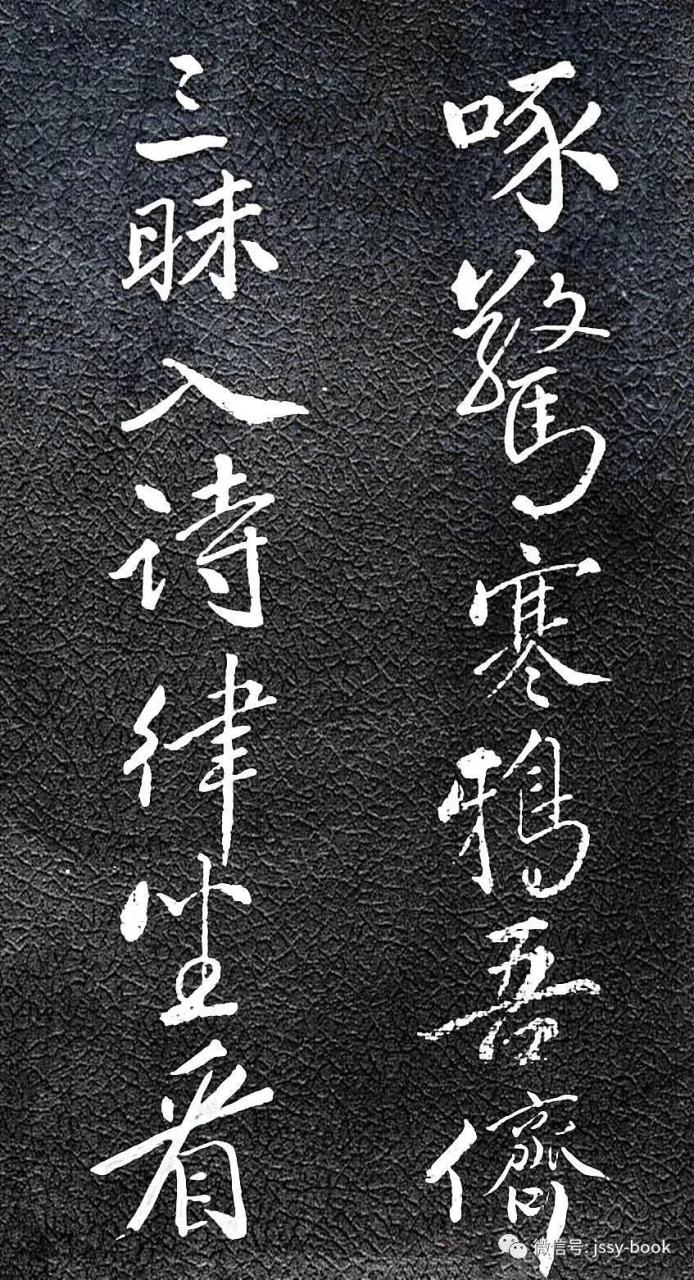 啄驚寒鴉吾儕
三昧入诗律坐看
微信号: jssy-book